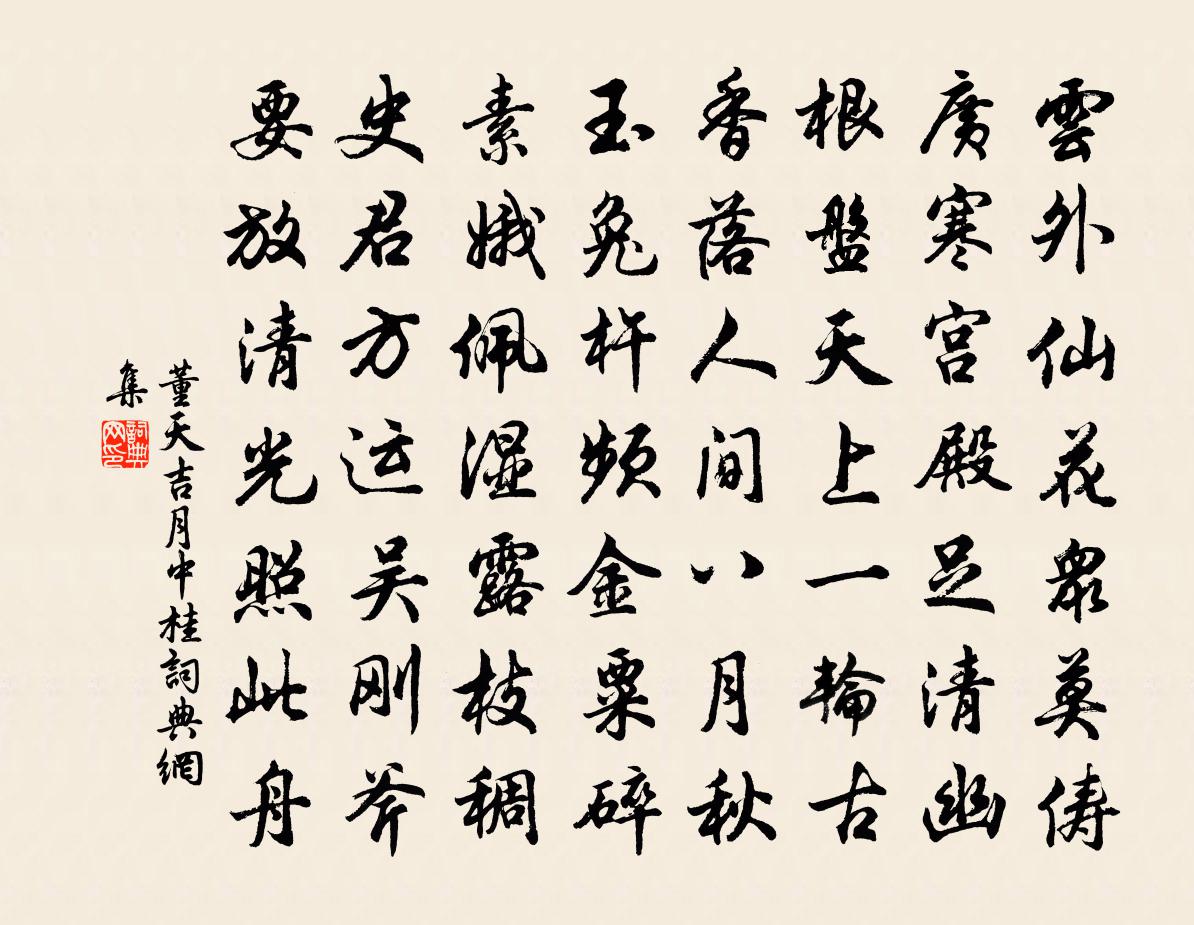 雲外仙花衆莫儔
廣寒宮殿足清幽
根盤天上一輪古
香落人間八月秋
玉兔杵頻金粟碎
素娥佩湿露枝稠
史君方运吴刚斧
要放清光照此舟
董天吉月中桂詞典網
集
詞典网印